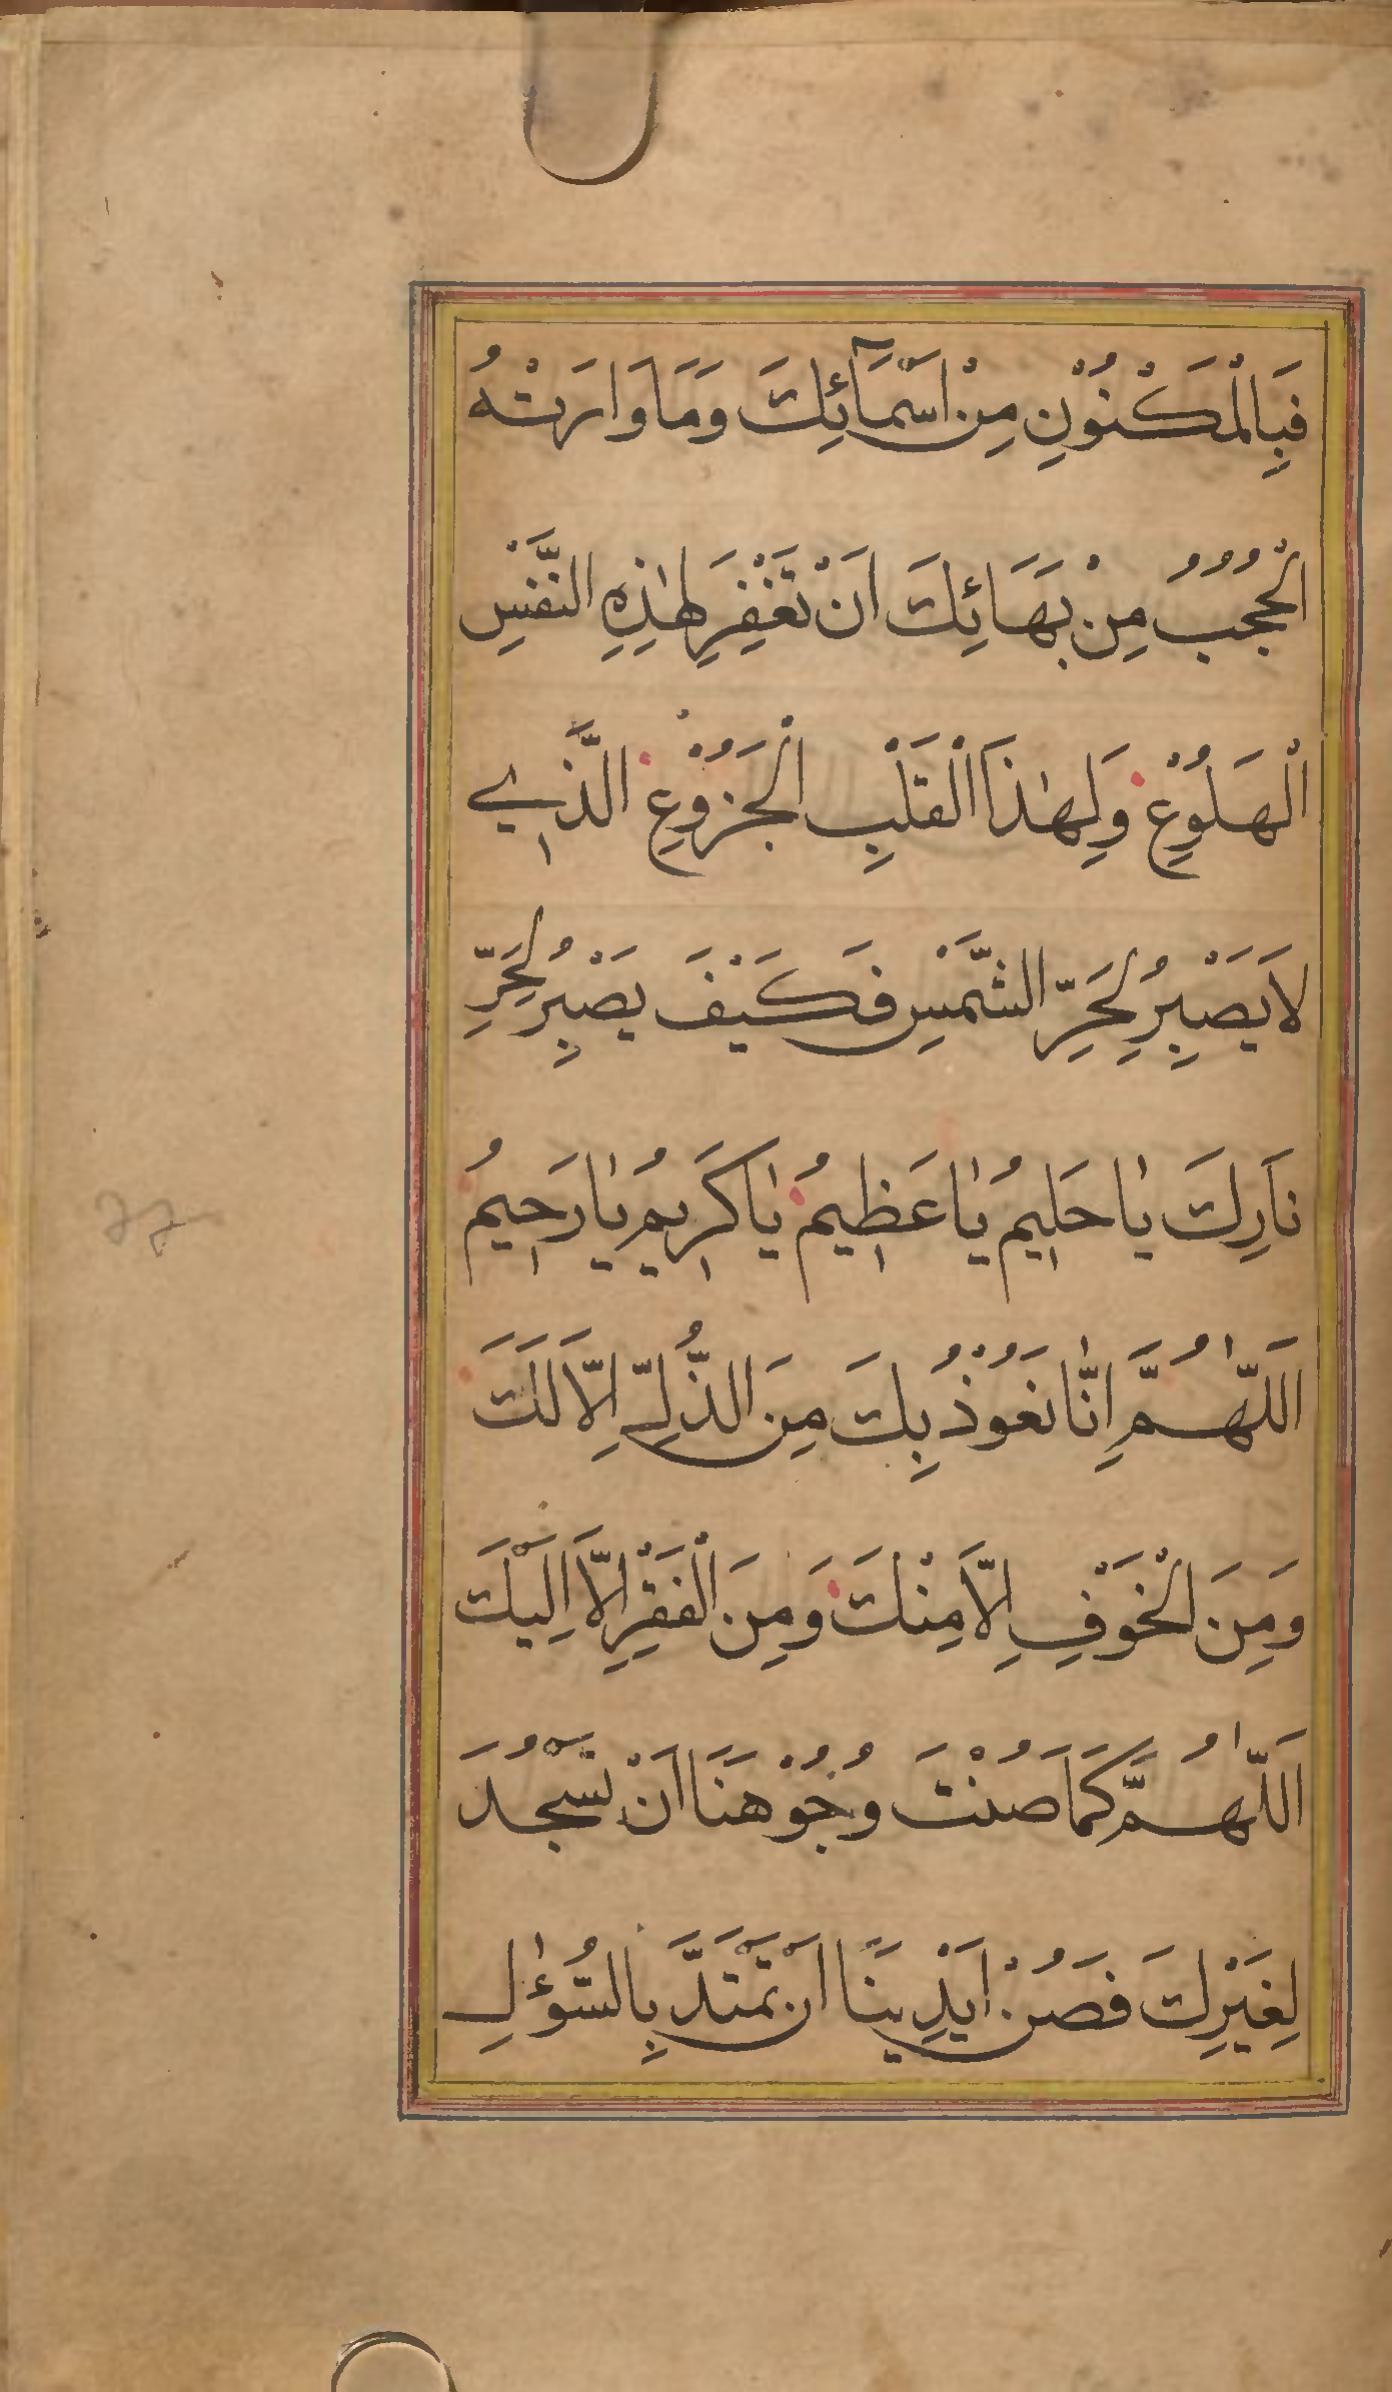 فَبِالْمَكْنُوْنِ مِنْ اَسْمَآئِكَ وَمَا وَارَتْهُ
الْحُجُبُ مِنْ بَهَائِكَ اَنْ تَغْفِرَ لِهٰذِهِ النَّفْسِ
الْهَلُوْعِ وَلِهٰذَا الْقَلْبِ الْجَزُوْعِ الَّذِي
لَا يَصْبِرُ لِحَرِّ الشَّمْسِ فَكَيْفَ يَصْبِرُ لِحَرِّ
نَارِكَ يٰا حَلِيمُ يٰا عَظِيمُ يٰا كَرِيمُ يٰا رَحِيمُ
اَللّٰهُمَّ اِنّٰا نَعُوْذُ بِكَ مِنَ الذُّلِّ اِلَّا لَكَ
وَمِنَ الْخَوْفِ اِلَّا مِنْكَ وَمِنَ الْفَقْرِ اِلَّا اِلَيْكَ
اَللّٰهُمَّ كَمَا صُنْتَ وُجُوْهَنَا اَنْ تَسْجُدَ
لِغَيْرِكَ فَصُنْ اَيْدِيَنَا اَنْ تَمْتَدَّ بِالسُّؤٰلِ